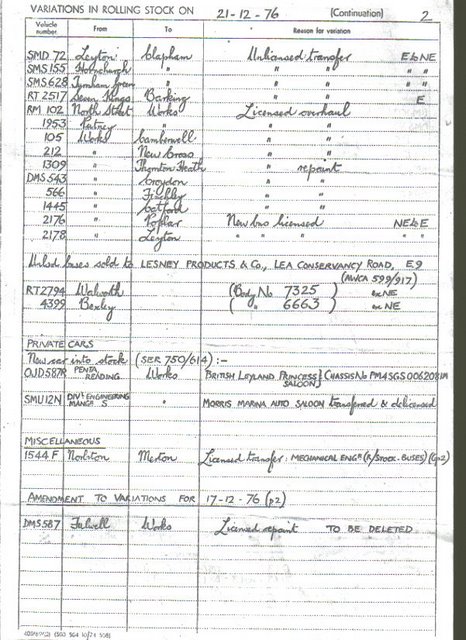 VARIATIONS IN ROLLING STOCK ON 21-12-76 (Continuation) 2
Vehicle number From To Reason for variation
SMD 72 Leyton Clapham Unlicensed transfer E to NE
SMS 155 Hornchurch " " " " "
SMS 628 Turnham Green " " " " "
RT 2517 Seven Kings Barking " " E
RM 102 North Street Works Licensed overhaul
1953 Putney " " "
105 Works Camberwell " "
212 " New Cross " "
1309 " Thornton Heath " repaint
DMS 543 " Croydon " "
566 " Finchley " "
1445 " Catford " "
2176 " Poplar New bus licensed NE to E
2178 " Leyton " " " " "
Unlsd buses sold to LESNEY PRODUCTS & Co., LEA CONSERVANCY ROAD, E9
(AWCA 599/917)
RT2794 Walworth (Body No 7325) ex NE
4399 Bexley ( " 6663) ex NE
PRIVATE CARS
New car into stock (SER 750/614) :-
OJD587R PENTA READING Works BRITISH LEYLAND PRINCESS SALOON
SMU12N DIVL ENGINEERING MANGR S " MORRIS MARINA AUTO SALOON transferred & delicensed
MISCELLANEOUS
1544 F Norbiton Merton Licensed transfer: MECHANICAL ENGR (R/STOCK-BUSES) (Gp2)
AMENDMENT TO VARIATIONS FOR 17-12-76 (p2)
DMS 587 Fulwell Works Licensed repaint TO BE DELETED